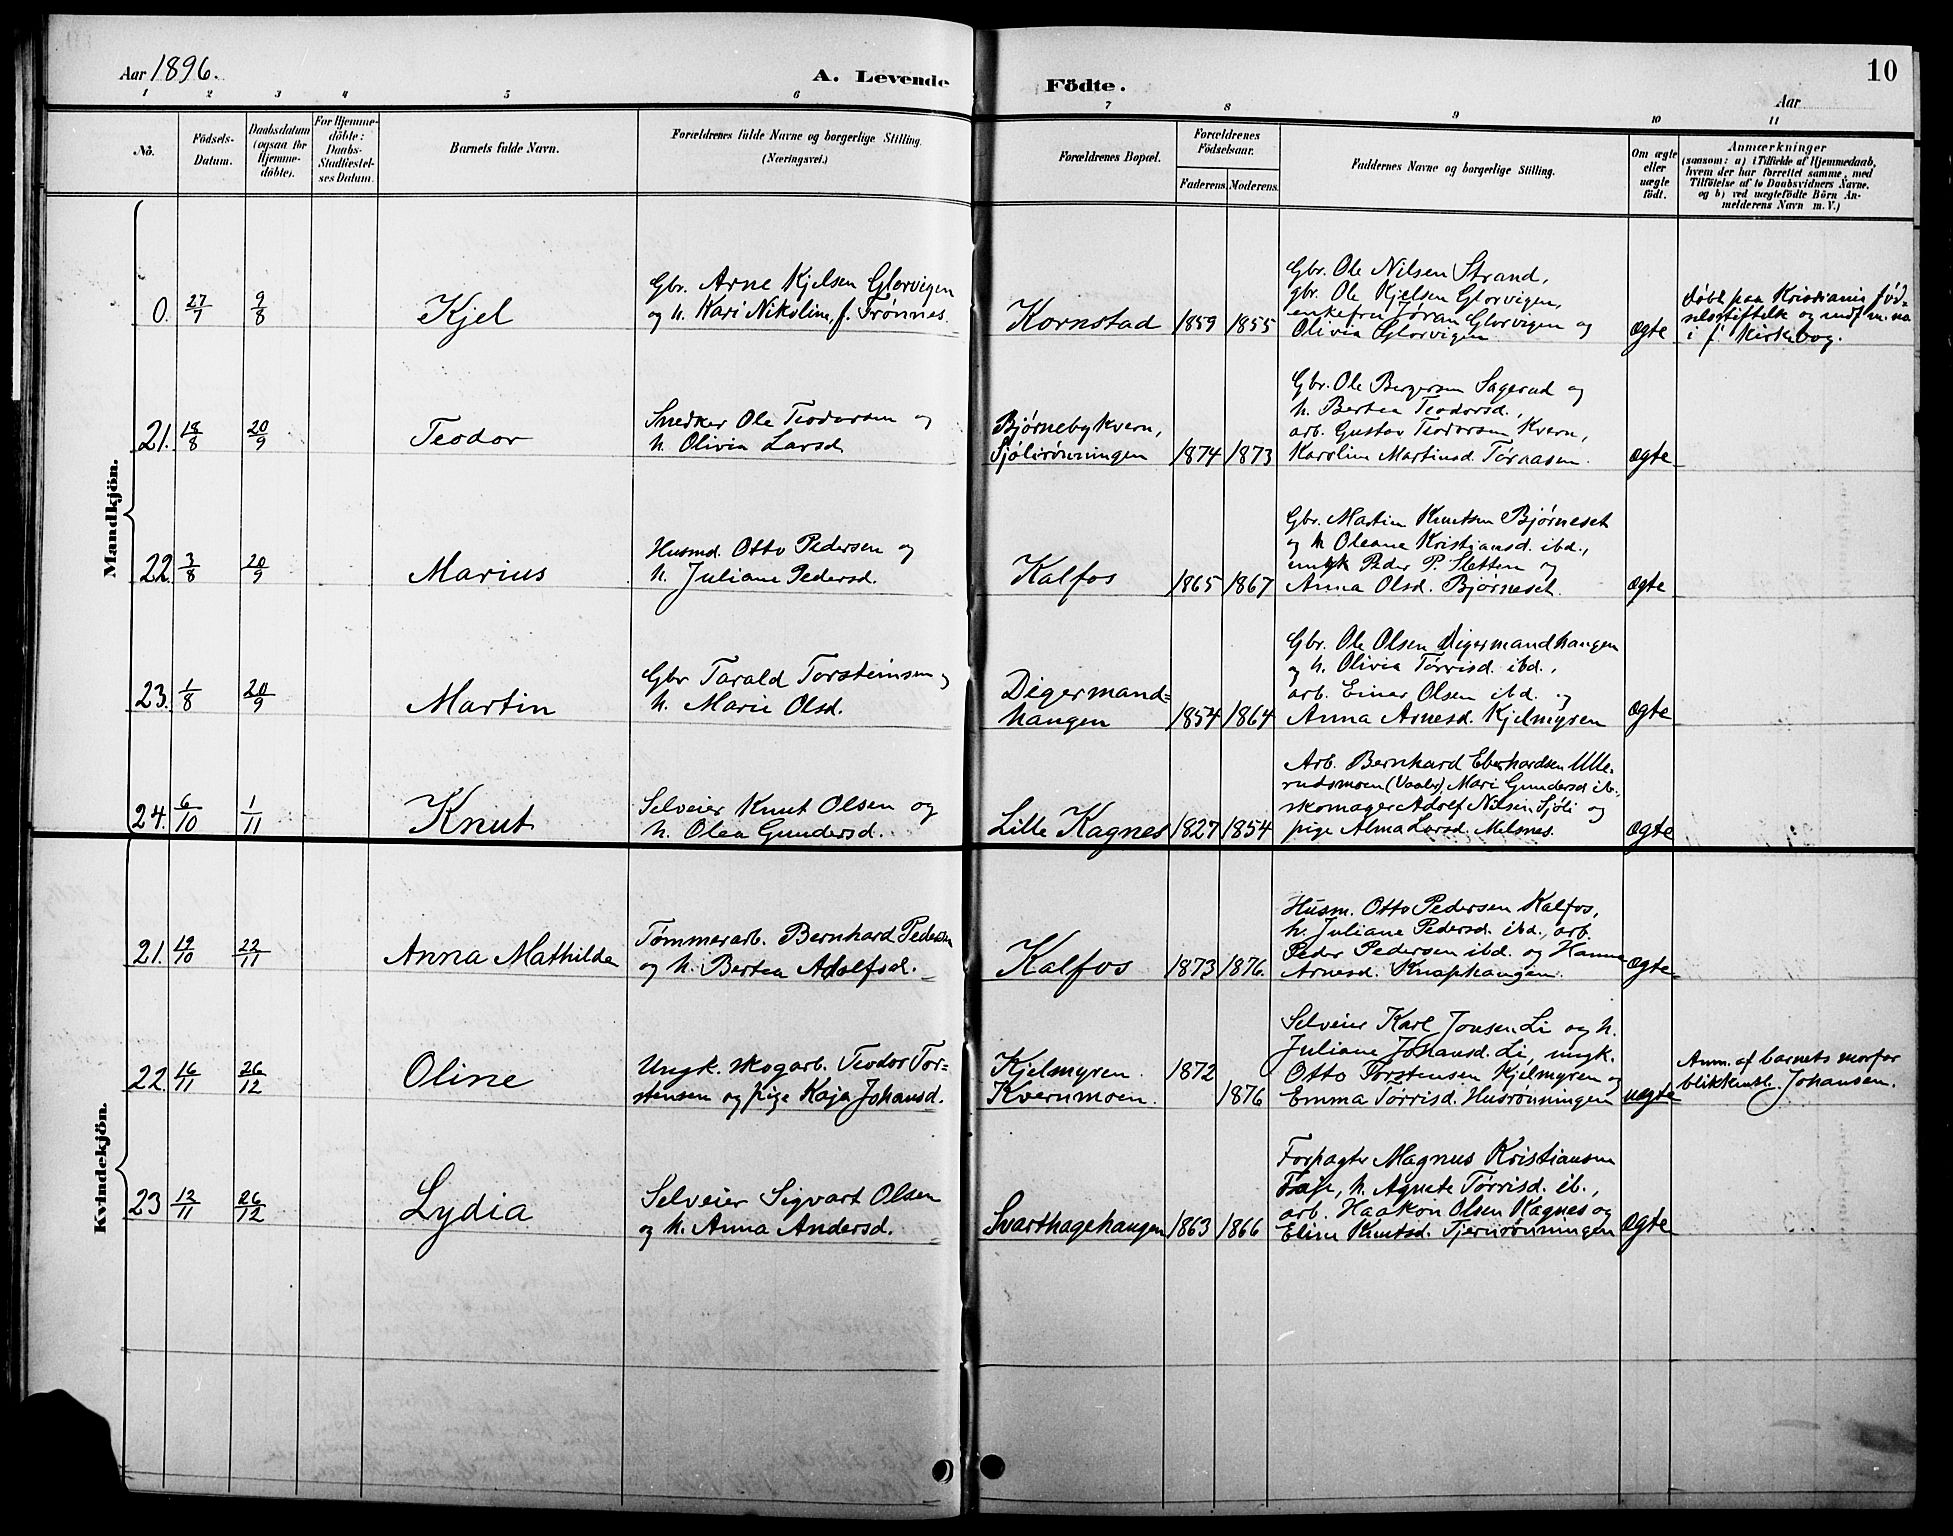 Aar 1896.
A. Levende Födte.
10
Aar
1 2 3 4 5 6 7 8 9 10 11
No.
Födsels-
Datum.
Daabsdatum
(ogsaa for
Hjemme-
döbte).
For Hjemme-
döbte:
Daabs-
Stadfæstel-
ses Datum.
Barnets fulde Navn.
Forældrenes fulde Navne og borgerlige Stilling.
(Næringsvei.)
Forældrenes Bopæl.
Forældrenes
Födselsaar.
Faderens.
Moderens.
Faddernes Navne og borgerlige Stilling.
Om ægte
eller
uægte
födt.
Anmærkninger
(saasom: a) i Tilfælde af Hjemmedaab,
hvem der har forrettet samme, med
Tilföielse af to Daabsvidners Navne.
og b) ved uægtefödte Börn An-
melderens Navn m. V.)
Mandkjön.
0. 27/7 9/8
Kjel
Gbr. Arne Kjelsen Glorvigen
og h. Kari Nikoline, f. Frønnes.
Kornstad 1859 1855
Gbr. Ole Nilsen Strand,
gbr. Ole Kjelsen Glorvigen,
enkefru Jøran Glorvigen og
Olivia Glorvigen
ægte
døbt paa Kristiania fød-
selsstiftelse og indf.
i f. Kirkebog.
21. 18/8 20/9
Teodor
Snedker Ole Teodorsen og
h. Olivia Larsd.
Bjørnebykvern,
Sjølirønningen 1874 1873
Gbr. Ole Bergersen Sagerud og
h. Bertea Teodorsd.,
arb. Gustav Teodorsen Kvern,
Karoline Martinsd. Tøraasen.
ægte
22. 3/8 20/9
Marius
Husmd. Otto Pedersen og
h. Juliane Pedersd.
Kalfos 1865 1867
Gbr. Martin Knutsen Bjørneset
og h. Oleane Kristiansd. ibd.,
ungk. Peder P. Sletten og
Anna Olsd. Bjørneset.
ægte
23. 1/8 20/9
Martin
Gbr Tarald Torsteinsen og
h. Marie Olsd.
Digermand=
hangen 1854 1864
Gbr. Ole Olsen Digermandhangen
og h. Olivia Tørrisd. ibd.,
arb. Einar Olsen ibd. og
Anna Arnesd. Kjelmyren
ægte
24. 6/10 1/11
Knut
Selveier Knut Olsen og
h. Olea Gundersd.
Lille Kagnes 1827 1854
Arb. Bernhard Eberhardsen Ulle-
rudsmoen (Vaaler), Mari Gundersd ib.,
skomager Adolf Nilsen Sjøli og
pige Alma Larsd. Melsnes.
ægte
Kvindekjön.
21. 19/10 22/11
Anna Mathilde
Tømmerarb. Bernhard Pedersen
og h. Bertea Adolfsd.
Kalfos 1873 1876.
Husm. Otto Pedersen Kalfos,
h. Juliane Pedersd. ibd., arb.
Peder Pedersen ibd. og Hanna
Arnesd. Knaphangen.
ægte
22. 16/11 26/12
Oline
Ungk. skogarb. Teodor Tor=
stensen og pige Kaja Johansd.
Kjelmyren. 1872
Kvernmoen. 1876
Selveier Karl Jonsen Li og h.
Juliane Johansd. Li, ungk.
Otto Torstensen Kjelmyren og
Emma Tørrisd. Husrønningen
uægte
Anm. af barnets morfar
blikkensl. Johansen.
23 12/11 26/12
Lydia
Selveier Sigvart Olsen
og h. Anna Andersd.
Svarthagehangen 1863 1866
Forpagter Magnus Kristiansen
h. Agnete Tørrisd. ib.,
arb. Haakon Olsen Kagnes og
Eline Knutsd. Tjernrønningen
ægte